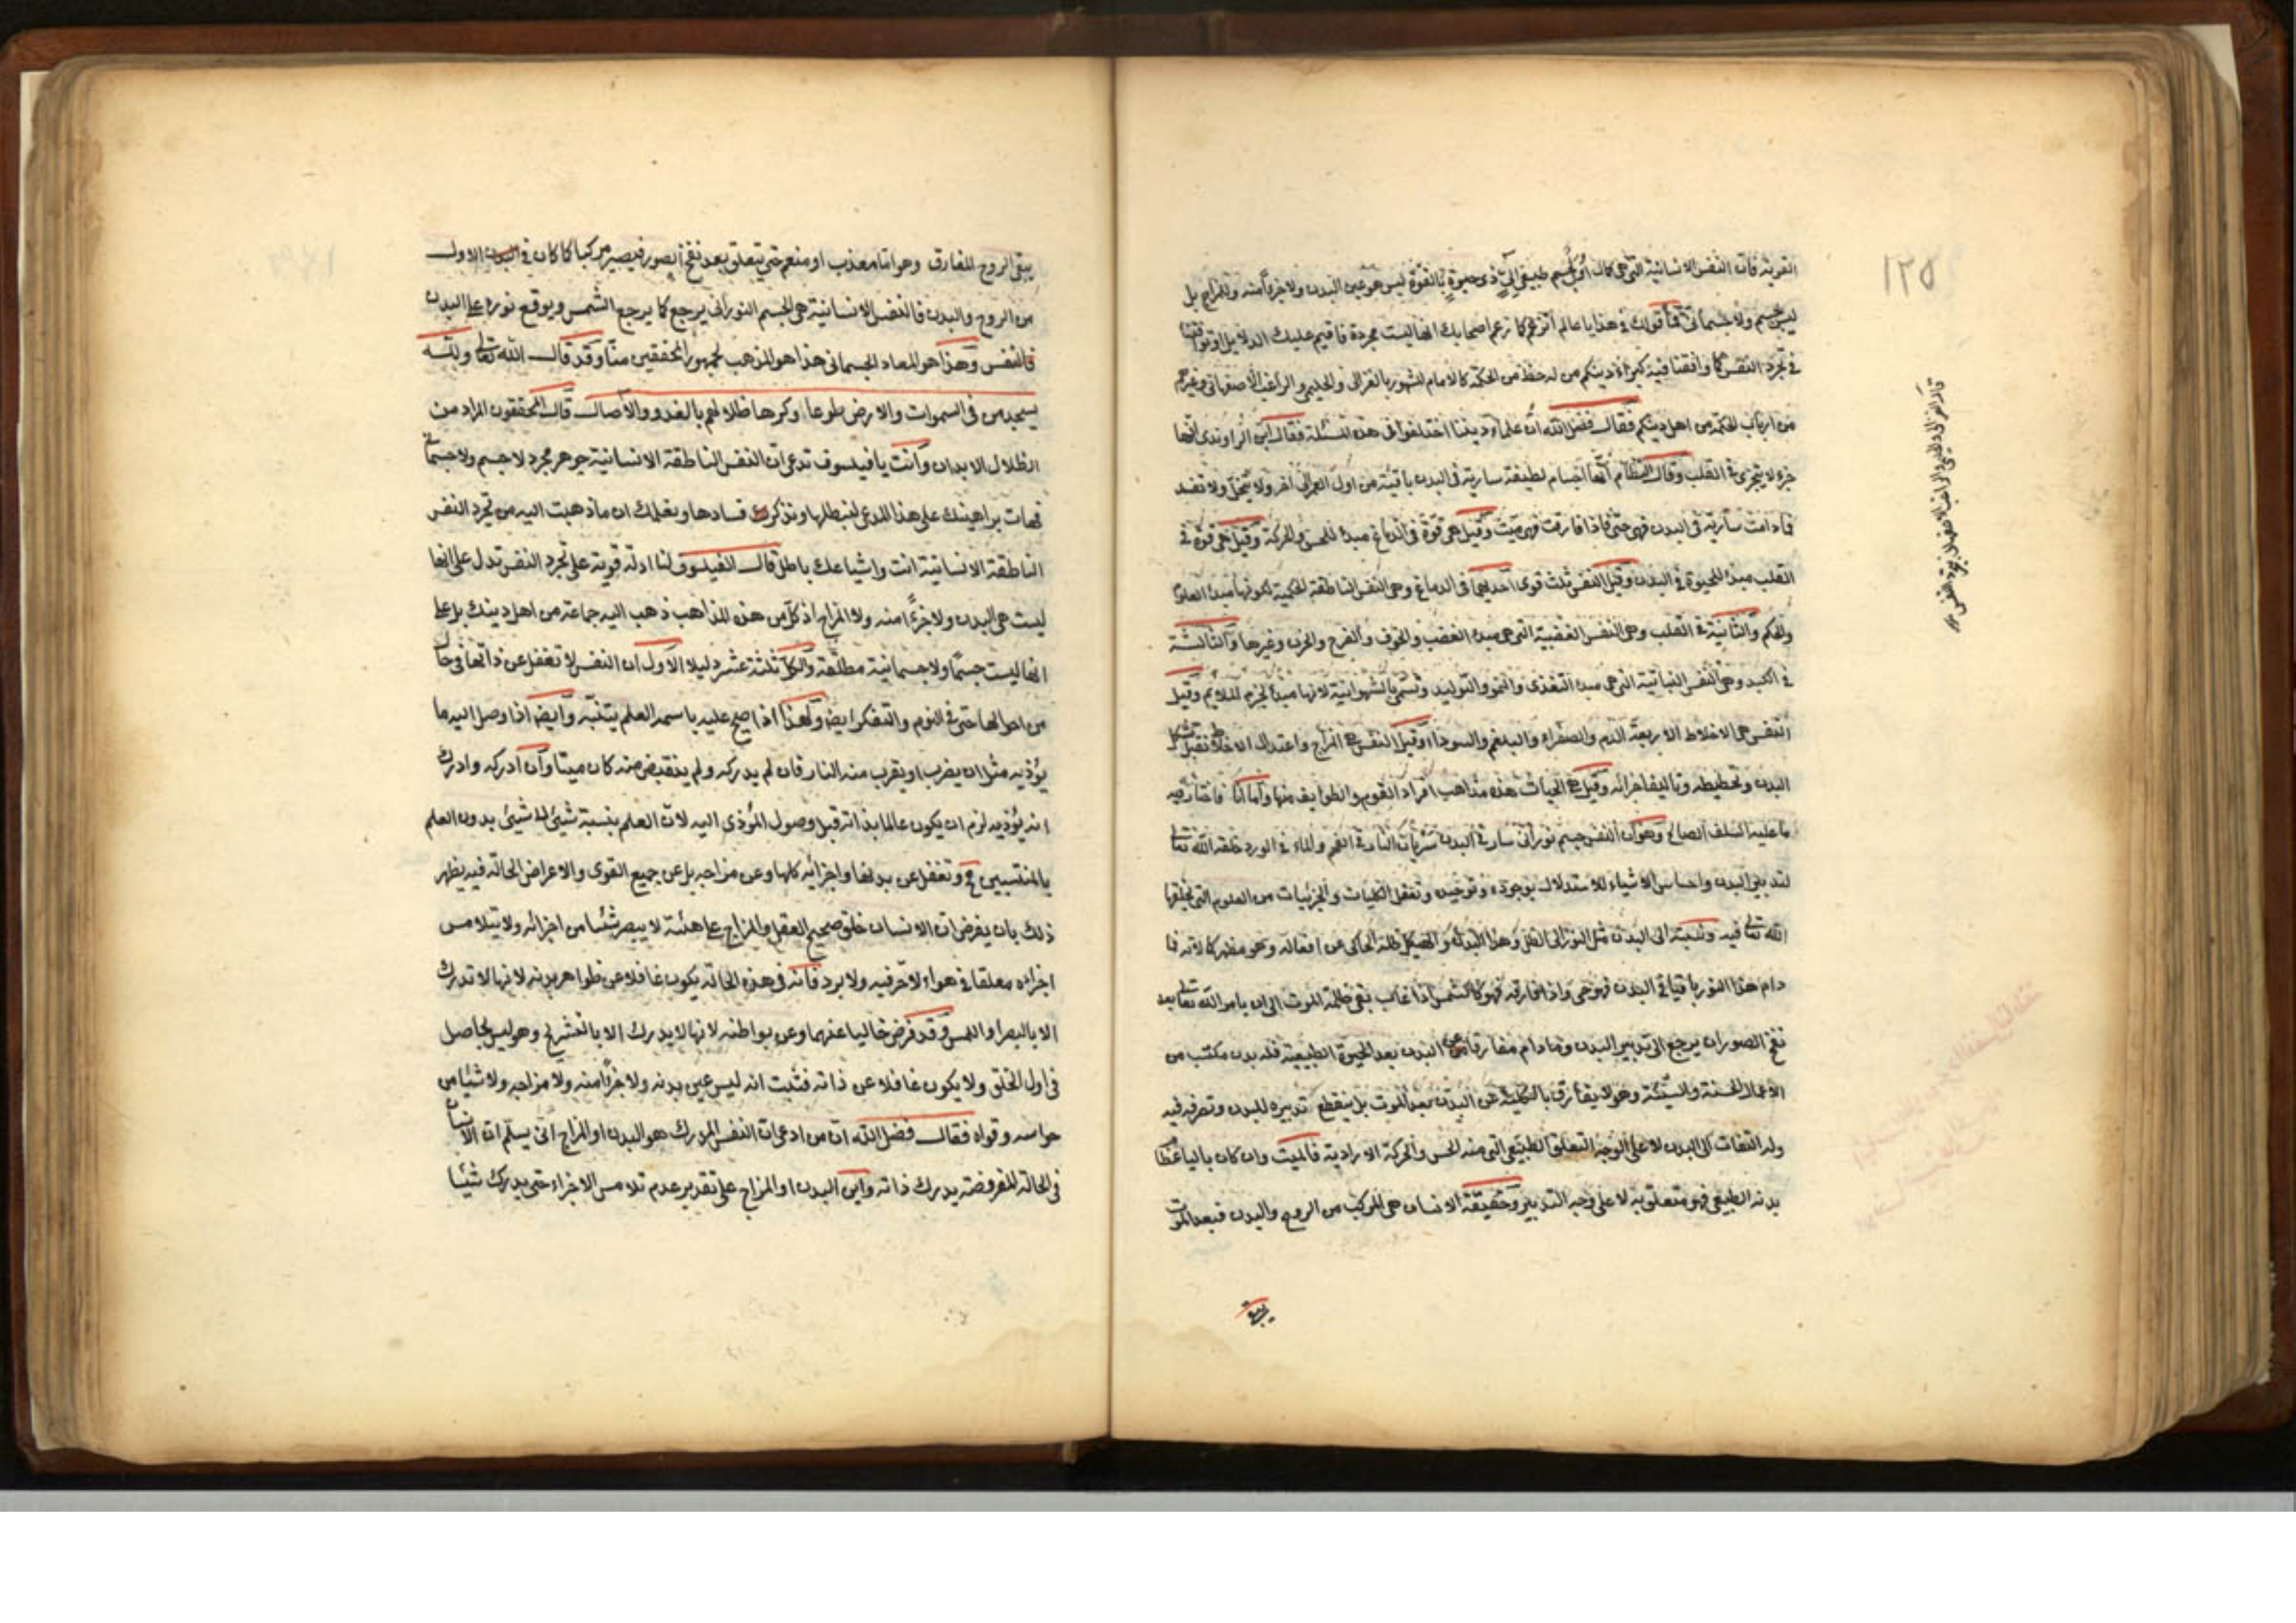 ١٢٥
القريبة فان النفس الانسانية التي هي كمال اول لجسم طبيعي آلي ذي حيوة بالقوة ليس هو عين البدن ولا جزءا منه ولا المزاج بل
ليس بجسم ولا جسماني فما قولك في هذا يا عالم اتزعم كما زعم اصحابك انها ليست مجردة فاقيم عليك الدلايل او توافقنا
في تجرد النفس كما وافقنا فيه كبراء دينكم من له حظ من الحكمة كالامام المشهور بالغزالي والحليمي والراغب الاصفهاني وغيرهم
من ارباب الحكمة من اهل دينكم فقال فضل الله ان علماء ديننا اختلفوا في هذه المسئلة فقال ابن الراوندي انها
جزء لا يتجزى في القلب وقال النظام انها اجسام لطيفة سارية في البدن باقية من اول العمر الى آخره لا تتحلل ولا تفسد
فما دامت سارية في البدن فهو حي فاذا فارقت فهو ميت وقيل هي قوة في الدماغ مبدأ للحس والحركة وقيل هي قوة في
القلب مبدأ للحيوة في البدن وقيل النفس ثلث قوى احديها في الدماغ وهي النفس الناطقة الحكمية لكونها مبدأ العلوم
والحكم والثانية في القلب وهي النفس الغضبية التي هي مبدأ الغضب والخوف والفرح والحزن وغيرها والثالثة
في الكبد وهي النفس النباتية التي هي مبدأ التغذى والنمو والتوليد وتسمى بالشهوانية لانها مبدأ لجذب الملايم وقيل
النفس هي الاخلاط الاربعة الدم والصفراء والبلغم والسوداء وقيل النفس هي المزاج واعتدال الاخلاط
البدن وتخطيطه وتاليف اجزائه وقيل هي الحيات هذه مذاهب افراد القوم والطوايف منها واما انا فاختار فيه
ما عليه السلف الصالح وهو ان النفس جسم نوراني سار في البدن سريان النار في الفحم والماء في الورد خلقه الله تعالى
لتدبير البدن واحساس الاشياء للاستدلال بوجوده وتوحيده وتعقل الكليات والجزئيات من العلوم التي يخلقها
الله تعالى فيه ونسبته الى البدن مثل النور الى الظل وهذا البدن والهيكل ظله الحاكى عن افعاله وهو مظهر كمالاته فما
دام هذا النور باقيا في البدن فهو حي واذا فارقه فهو كالشمس اذا غاب بقي ظلمة الموت الى ان يامر الله تعالى بعد
نفخ الصور ان يرجع الى تدبير البدن وما دام مفارقا عن البدن بعد الحيوة الطبيعية فله بدن مكتب من
الاعمال الحسنة والسيئة وهو لا يفارق بالكلية عن البدن بعد الموت بل ينقطع تدبيره للبدن وتصرفه فيه
وله التفات الى البدن لا على الوجه التعلق الطبيعي التي منه الحس والحركة الارادية فالميت وان كان باليا عظام
بدنه الطبيعي فهو متعلق به لا على وجه التدبير وحقيقة الانسان هي المركب من الروح والبدن فبعد الموت
يبقى
قال الغزالي والحليمي والراغب الاصفهاني بتجرد النفس
يبقى الروح المفارق وهو اما معذب او منعم حتى يتعلق بعد نفخ الصور فيصير مركبا كما كان في البدن الاول
من الروح والبدن فالنفس الانسانية هي الجسم النوراني يرجع كما يرجع الشمس ويوقع نوره على البدن
فالنفس وهذا هو المعاد الجسماني هذا هو المذهب لجمهور المحققين منا وقد قال الله تعالى ولله
يسجد من في السموات والارض طوعا وكرها وظلالهم بالغدو والآصال قال المحققون المراد من
الظلال الابدان وانت يا فيلسوف تدعى ان النفس الناطقة الانسانية جوهر مجرد لا جسم ولا جسماني
فهات براهينك على هذا المدعى لنبطلها ونذكر فسادها ونعلمك ان ما ذهبت اليه من تجرد النفس
الناطقة الانسانية انت واشياعك باطل قال الفيلسوف لنا ادلة قوية على تجرد النفس تدل على انها
ليست هي البدن ولا جزءا منه ولا المزاج اذ كل من هذه المذاهب ذهب اليه جماعة من اهل دينك بل على
انها ليست جسما ولا جسمانية مطلقة والكل ثلثة عشر دليلا الاول ان النفس لا تغفل عن ذاتها في حال
من احوالها حتى في النوم والتفكر ايض ولهذا اذا صيح عليه باسمه العلم يتنبه وايض اذا وصل اليه ما
يؤذيه مثل ان يضرب او يقرب منه النار فان لم يدركه ولم ينقبض منه كان ميتا وان ادركه وادرك
انه يؤذيه لزم ان يكون عالما بذاته قبل وصول المؤذي اليه لان العلم بنسبة شيئ الى شيئ بدون العلم
بالمنتسبين مح وتغفل عن بدنها واجزائه كلها وعن مزاجه بل عن جميع القوى والاعراض الحالة فيه يظهر
ذلك بان يفرض ان الانسان خلق صحيح العقل والمزاج على هئية لا يبصر شئيا من اجزائه ولا يتلامس
اجزاؤه معلقا في هواء لا حر فيه ولا برد فانه في هذه الحالة يكون غافلا عن ظواهر بدنه لانها لا تدرك
الا بالبصر او اللمس وقد فرض خاليا عنهما وعن بواطنه لانها لا يدرك الا بالتشريح وهو ليس بحاصل
في اول الخلق ولا يكون غافلا عن ذاته فثبت انه ليس عين بدنه ولا جزءا منه ولا مزاجه ولا شيئا من
حواسه وقواه فقال فضل الله ان من ادعى ان النفس المدرك هو البدن او المزاج انى يسلم ان الانسان
في الحالة المفروضة يدرك ذاته واين البدن او المزاج على تقدير عدم تلامس الاجزاء حتى يدرك شيئا